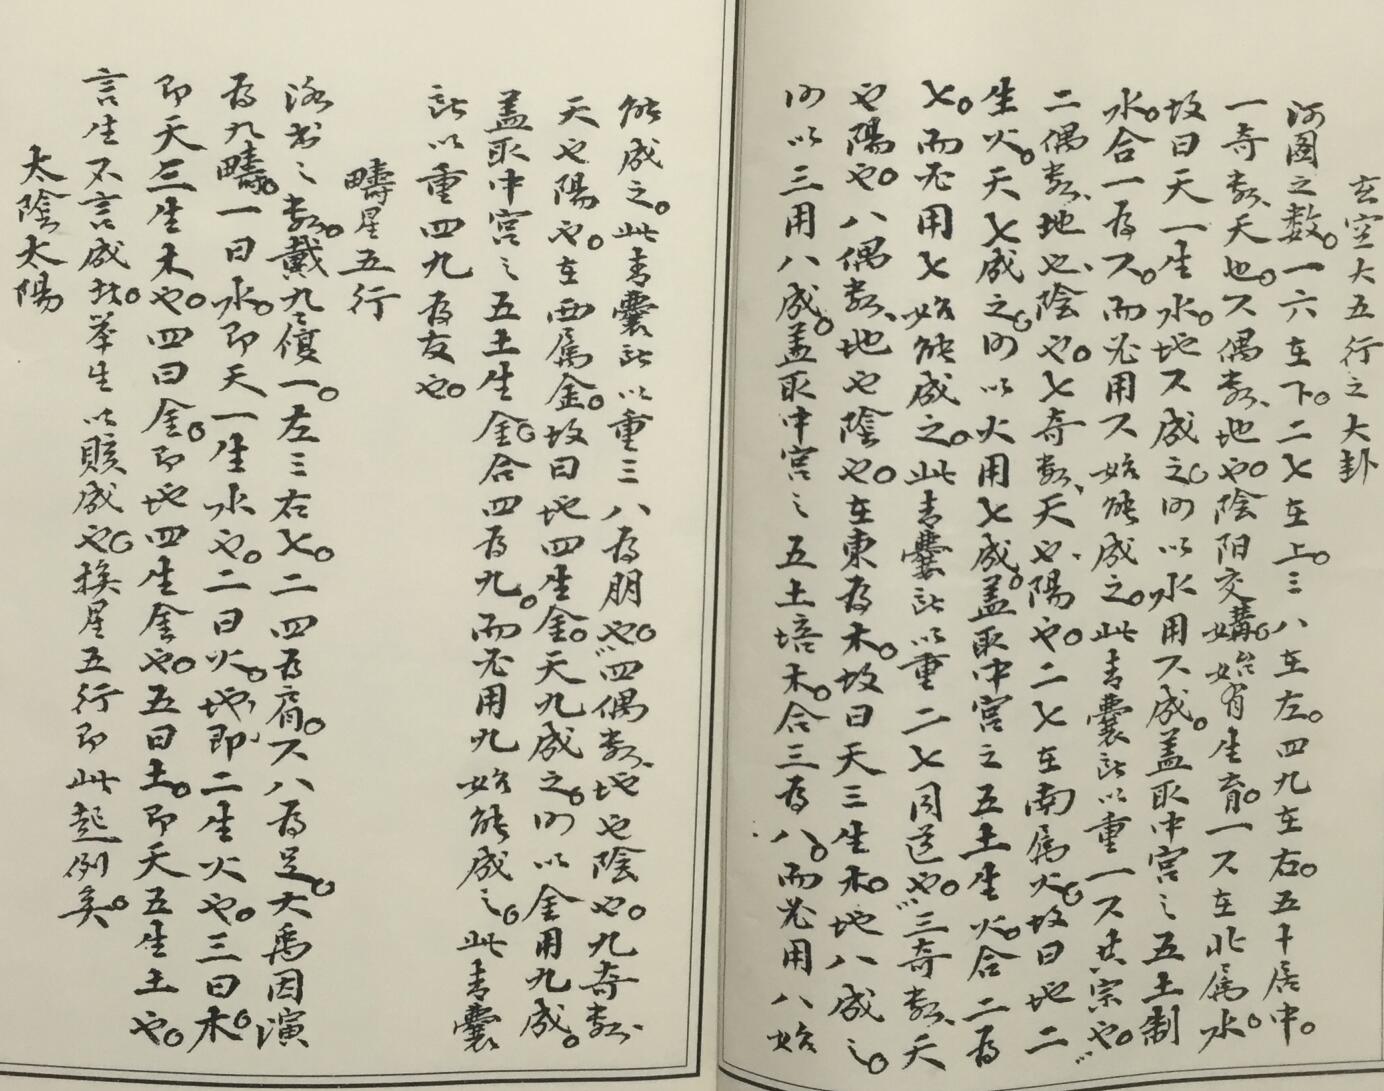 玄空大五行之大卦
河圖之数。一六在下。二七在上。三八在左。四九在右。五十居中。
一奇数、天也。六偶数、地也。陰阳交媾。始有生育。一六在北属水。
故曰天一生水。地六成之。所以水用六成。盖取中宮之五土制
水。合一為六。而必用六始能成之。此青囊所以重一六共宗也。
二偶数、地也、陰也。七奇数、天也、陽也。二七在南属火。故曰地二
生火。天七成之。所以火用七成。盖取中宮之五土生火。合二為
七。而必用七始能成之。此青囊所以重二七同道也。三奇数、天
也陽也。八偶数、地也陰也。在東為木。故曰天三生木。地八成之。
所以三用八成。盖取中宮之五土培木。合三為八。而必用八始
能成之。此青囊所以重三八為朋也。四偶数、地也陰也。九奇数、
天也陽也。在西属金。故曰地四生金。天九成之。所以金用九成。
盖取中宮之五土生金。合四為九。而必用九始能成之。此青囊
所以重四九為友也。
疇星五行
洛书之数。戴九履一。左三右七。二四為肩。六八為足。大禹因演
為九疇。一曰水。即天一生水也。二曰火。地即二生火也。三曰木。
即天三生木也。四曰金。即地四生金也。五曰土。即天五生土也。
言生不言成者。举生以賅成也。挨星五行即此起例矣。
太陰太陽